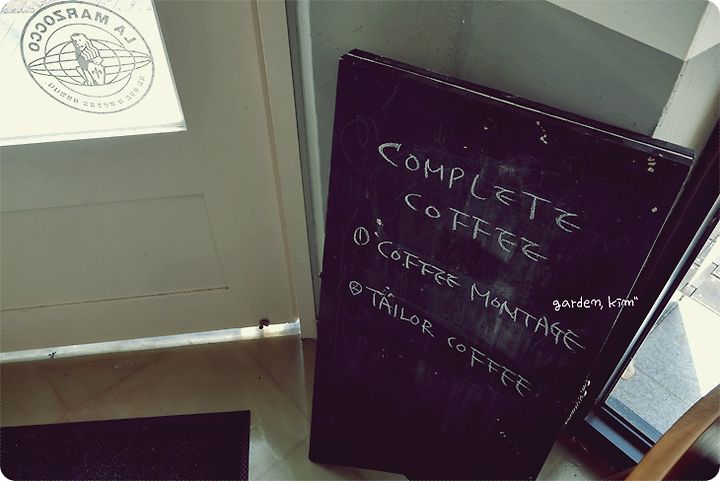 LA MARZOCCO
COMPLETE
COFFEE
① COFFEE MONTAGE
② TAILOR COFFEE
garden, kim"